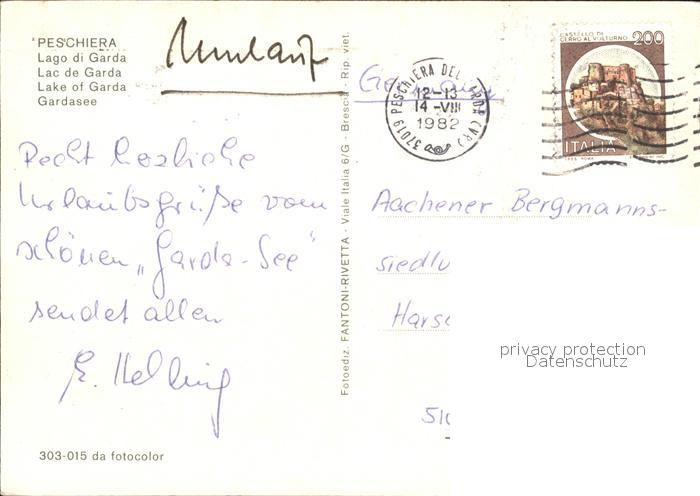 PESCHIERA
Lago di Garda
Lac de Garda
Lake of Garda
Gardasee
Umlauf
Recht herzliche
Urlaubsgrüße vom
schönen „Garda-See"
sendet allen
E. Helling
303-015 da fotocolor
Fotoediz. FANTONI-RIVETTA - Viale Italia 6/G - Brescia - Rip. viet.
Germany
37019 PESCHIERA DEL GARDA (VR)
12-13
14-VIII
1982
CASTELLO DI
CERRO AL VOLTURNO
200
ITALIA
Aachener Bergmanns-
siedlu
Harsc
privacy protection
Datenschutz
51